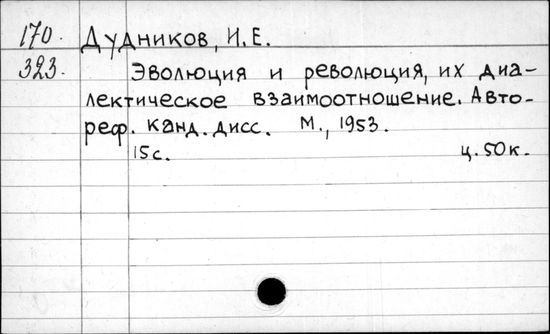 170. Дудников, И.Е.
323. Эволюция и революция, их диа-
лектическое взаимоотношение. Авто-
реф. канд. дисс. М., 1953.
15 с. ц. 50 к.